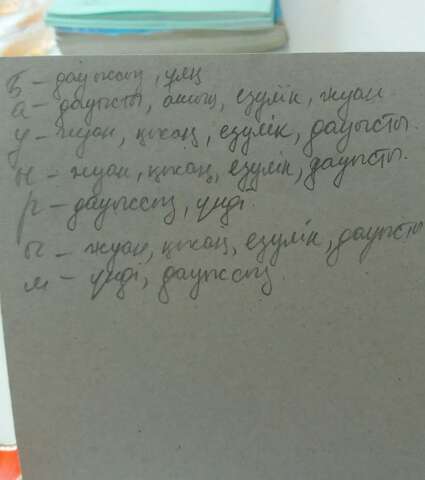 Б – дауыссыз, ұяң
а – дауысты, ашық, езулік, жуан
у – жуан, қысаң, езулік, дауысты.
ы – жуан, қысаң, езулік, дауысты.
р – дауыссыз, үнді.
ы – жуан, қысаң, езулік, дауысты
м – үнді, дауыссыз